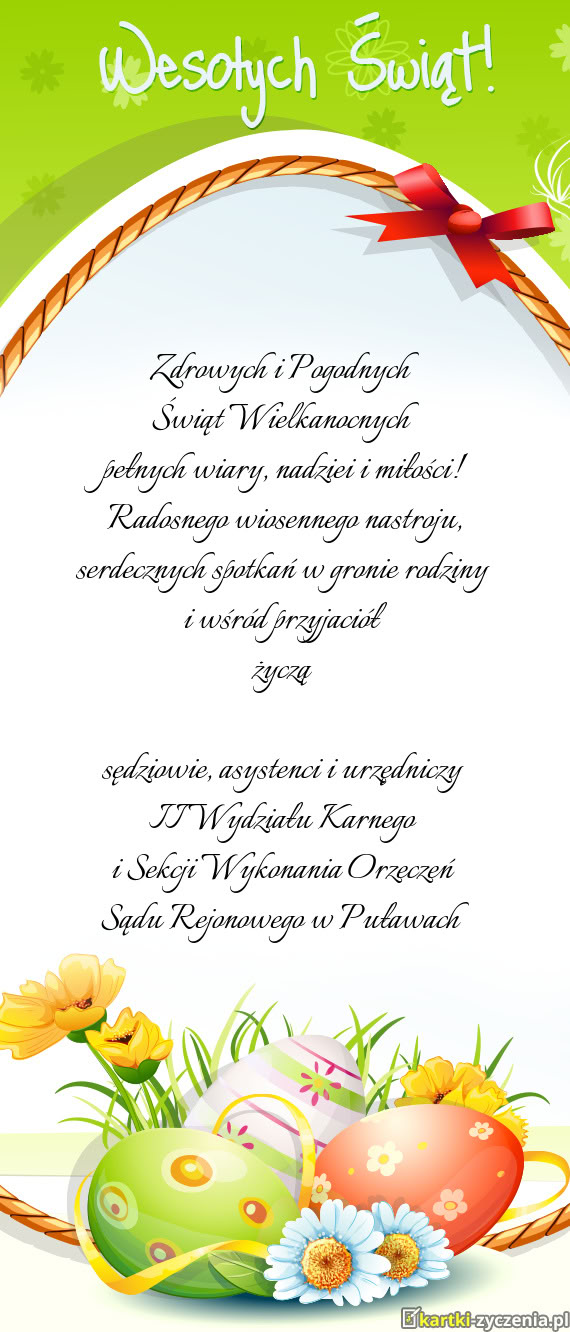 Wesołych Świąt!
Zdrowych i Pogodnych
Świąt Wielkanocnych
pełnych wiary, nadziei i miłości!
Radosnego wiosennego nastroju,
serdecznych spotkań w gronie rodziny
i wśród przyjaciół
życzą
sędziowie, asystenci i urzędniczy
II Wydziału Karnego
i Sekcji Wykonania Orzeczeń
Sądu Rejonowego w Puławach
kartki-zyczenia.pl